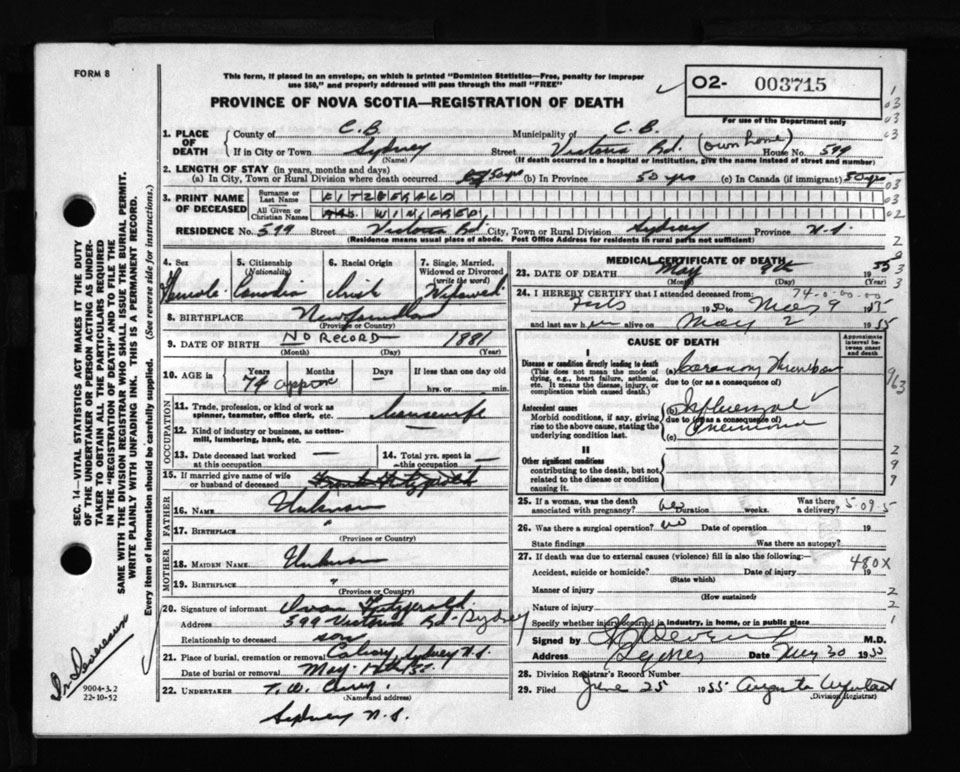 FORM 8
This form, if placed in an envelope, on which is printed "Dominion Statistics—Free, penalty for improper
use $50," and properly addressed will pass through the mail "FREE"
PROVINCE OF NOVA SCOTIA—REGISTRATION OF DEATH
02- 003715
For use of the Department only
1. PLACE OF DEATH County of C.B. Municipality of C.B.
If in City or Town Sydney Street Victoria Rd. (own home) House No. 599
(Name) (If death occurred in a hospital or institution, give the name instead of street and number)
2. LENGTH OF STAY (in years, months and days)
(a) In City, Town or Rural Division where death occurred 50 yrs (b) In Province 50 yrs (c) In Canada (if immigrant) 50 yrs
3. PRINT NAME OF DECEASED Surname or Last Name FITZGERALD
All Given or Christian Names WINIFRED
RESIDENCE No. 599 Street Victoria Rd City, Town or Rural Division Sydney Province N.S.
(Residence means usual place of abode. Post Office Address for residents in rural parts not sufficient)
4. Sex Female
5. Citizenship (Nationality)
6. Racial Origin Irish
7. Single, Married, Widowed or Divorced (write the word) Widowed
8. BIRTHPLACE Newfoundland
(Province or Country)
9. DATE OF BIRTH NO RECORD 1881
(Month) (Day) (Year)
10. AGE in Years Months Days If less than one day
74 approx — hrs. or min.
OCCUPATION
11. Trade, profession, or kind of work as spinner, teamster, office clerk, etc. housewife
12. Kind of industry or business, as cotton-mill, lumbering, bank, etc. —
13. Date deceased last worked at this occupation —
14. Total yrs. spent in this occupation —
15. If married give name of wife or husband of deceased Frank Fitzgerald
FATHER
16. Name Unknown
17. Birthplace "
(Province or Country)
MOTHER
18. Maiden Name Unknown
19. Birthplace "
(Province or Country)
20. Signature of informant Fitzgerald
Address 599 Victoria Rd - Sydney
Relationship to deceased son
21. Place of burial, cremation or removal Calvary, Sydney N.S.
Date of burial or removal May 12th 55
22. UNDERTAKER T. W. Curry
(Name and address)
Sydney N.S.
MEDICAL CERTIFICATE OF DEATH
23. DATE OF DEATH May 9th 1955
(Month) (Day)
74-0-00-00
24. I HEREBY CERTIFY that I attended deceased from
1950 to May 9 1955
and last saw h alive on May 2 1955
CAUSE OF DEATH
Approximate interval between onset and death
I
Disease or condition directly leading to death
(This does not mean the mode of dying, e.g., heart failure, asthenia, etc. It means the disease, injury, or complication which caused death.)
(a) Coronary
due to (or as a consequence of)
Antecedent causes
Morbid conditions, if any, giving rise to the above cause, stating the underlying condition last.
(b) Influenzal
due to (or as a consequence of)
(c) Pneumonia
II
Other significant conditions
contributing to the death, but not related to the disease or condition causing it.
25. If a woman, was the death associated with pregnancy? no Duration weeks. Was there a delivery? 5-09-5
26. Was there a surgical operation? no Date of operation 19
State findings Was there an autopsy?
27. If death was due to external causes (violence) fill in also the following:— 480X
Accident, suicide or homicide? Date of injury 19
(State which)
Manner of injury
(How sustained)
Nature of injury
Specify whether injury occurred in industry, in home, or in public place
Signed by M.D.
Address Sydney Date May 30 1955
28. Division Registrar's Record Number
29. Filed June 25 1955 Augusta
(Division Registrar)
SEC. 14—VITAL STATISTICS ACT MAKES IT THE DUTY
OF THE UNDERTAKER OR PERSON ACTING AS UNDER-
TAKER TO OBTAIN ALL THE PARTICULARS REQUIRED
IN THE "REGISTRATION OF DEATH" AND TO FILE THE
SAME WITH THE DIVISION REGISTRAR WHO SHALL ISSUE THE BURIAL PERMIT.
WRITE PLAINLY WITH UNFADING INK. THIS IS A PERMANENT RECORD.
Every item of information should be carefully supplied. (See reverse side for instructions.)
Dr Devereaux
9004-3.2
22-10-52